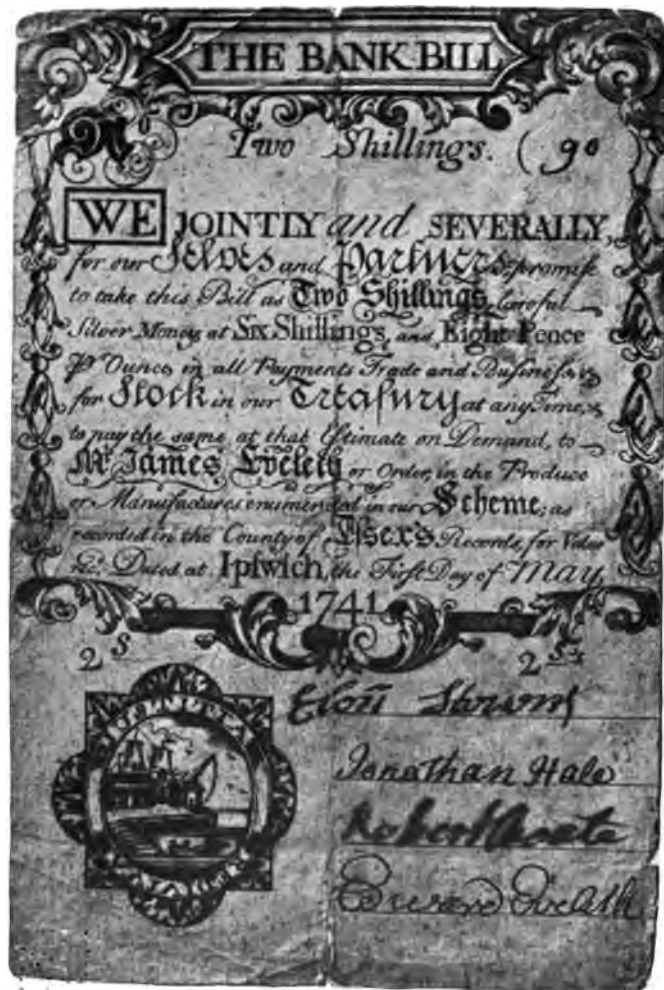 THE BANK BILL
No Two Shillings. (90
WE JOINTLY and SEVERALLY,
for our Selves and Partners, promise
to take this Bill as Two Shillings, Lawful
Silver Money, at Six Shillings, and Eight Pence
Pr Ounce, in all Payments Trade and Business, &
for Stock in our Treasury at any Time, &
to pay the same at that Estimate on Demand, to
Mr. James Eveleth or Order, in the Produce
or Manufactures enumerated in our Scheme; as
recorded in the County of Essex's Records, for Value
Dated at Ipswich, the First Day of May,
1741
2 S 2 S
Jonathan Hale
Robert
Edward Eveleth